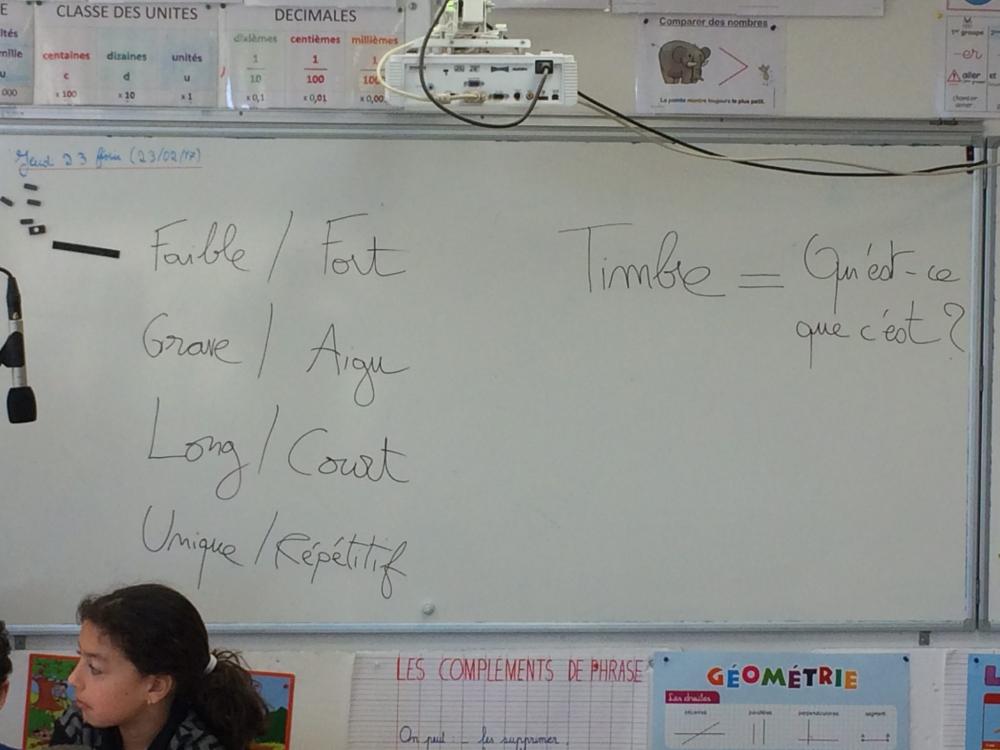 CLASSE DES UNITES
centaines dizaines unités
c d u
x 100 x 10 x 1
DECIMALES
dixièmes centièmes millièmes
1 1 1
10 100
x 0,1 x 0,01
Comparer des nombres
La pointe montre toujours le plus petit.
1er groupe
-er
aller
Jeudi 23 février (23/02/17)
Faible / Fort
Grave / Aigu
Long / Court
Unique / Répétitif
Timbre = Qu'est-ce
que c'est ?
LES COMPLÉMENTS DE PHRASE
On peut : - les supprimer,
GÉOMÉTRIE
Les droites
sécantes parallèles perpendiculaires segment